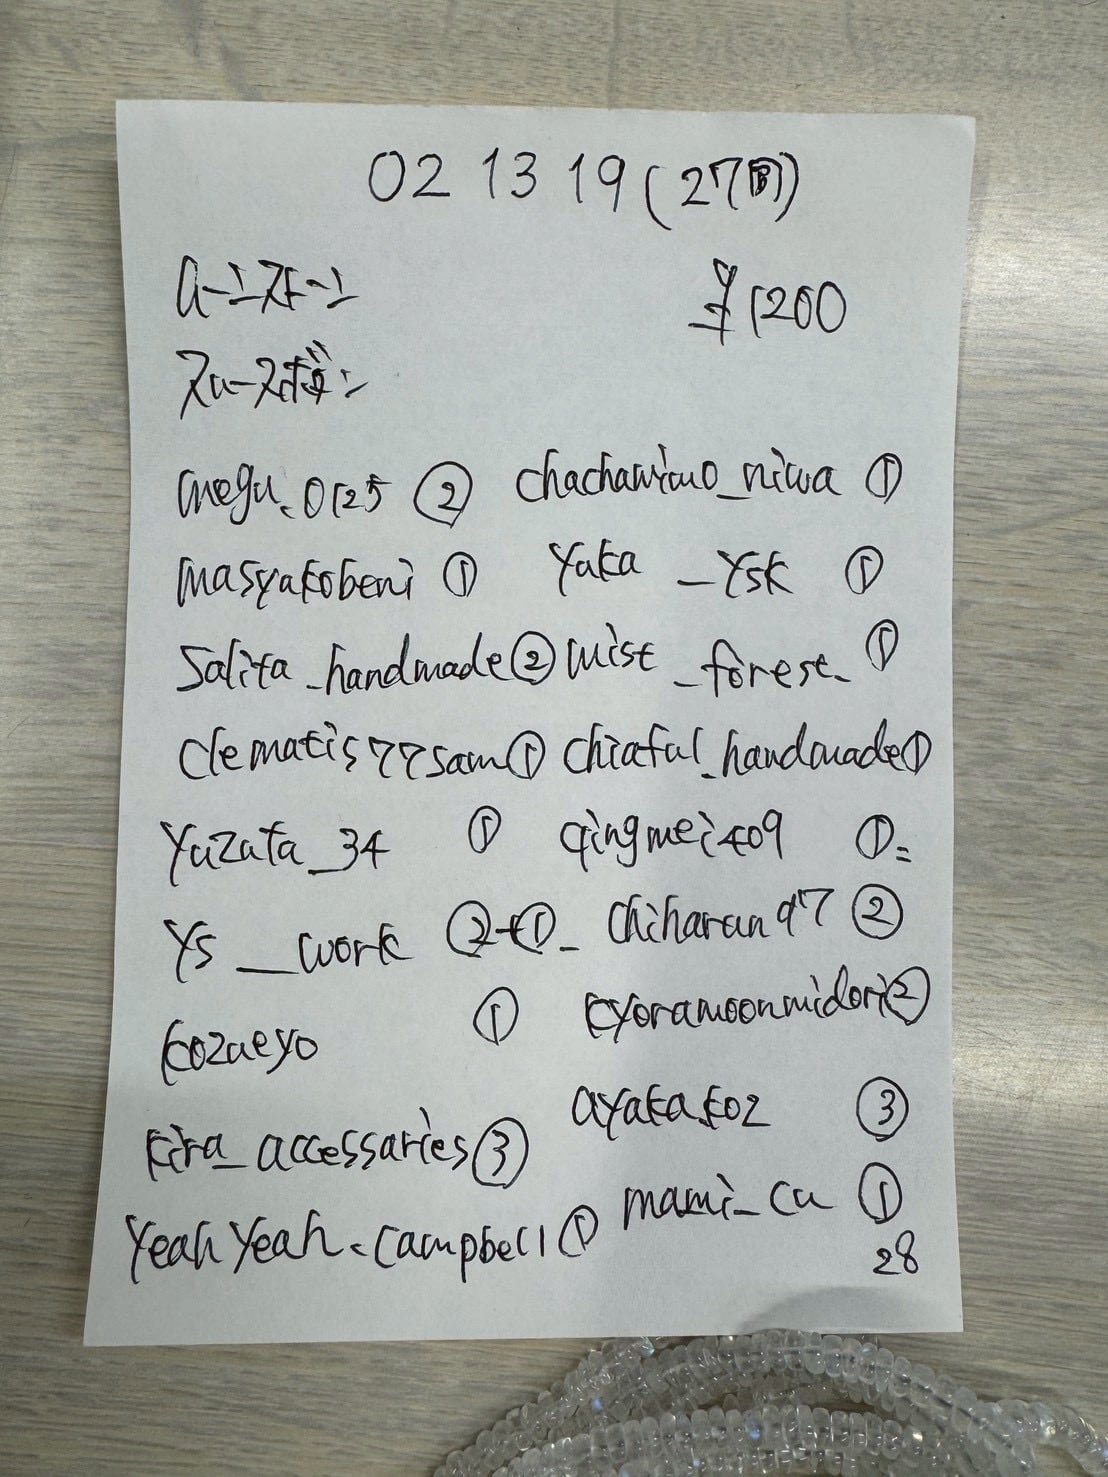 02 13 19 (27本)
ムーンストーン ¥1200
スムースボタン
megu.0125 ② chachamimo_niwa ①
masyakobeni ① Yuka_Ysk ①
Salita_handmade ② mist_forest_ ①
Clematis77sam ① chiaful_handmade ①
Yuzuta_34 ① qingmei409 ①
Ys__work ②+① chiharun97 ②
kozueyo ① kyoramoonmidori ②
kira_accessaries ③ ayaka.koz ③
YeahYeah.campbell ① mami_cu ①
28